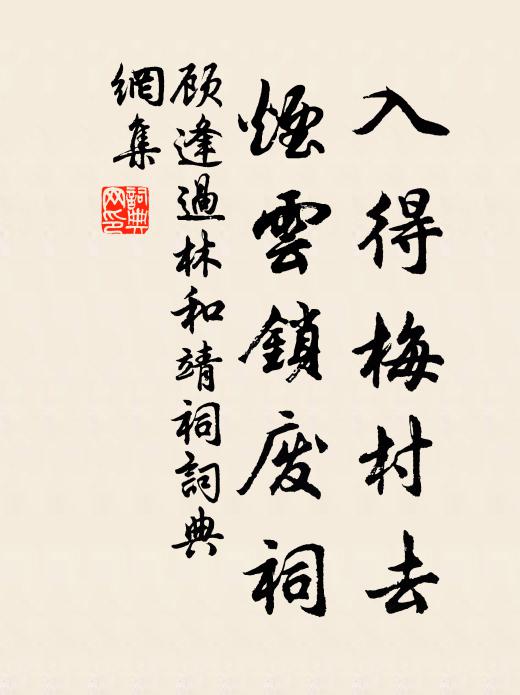 入得梅村去
煙雲鎖废祠
顾逢過林和靖祠詞典
網集
詞典
网印